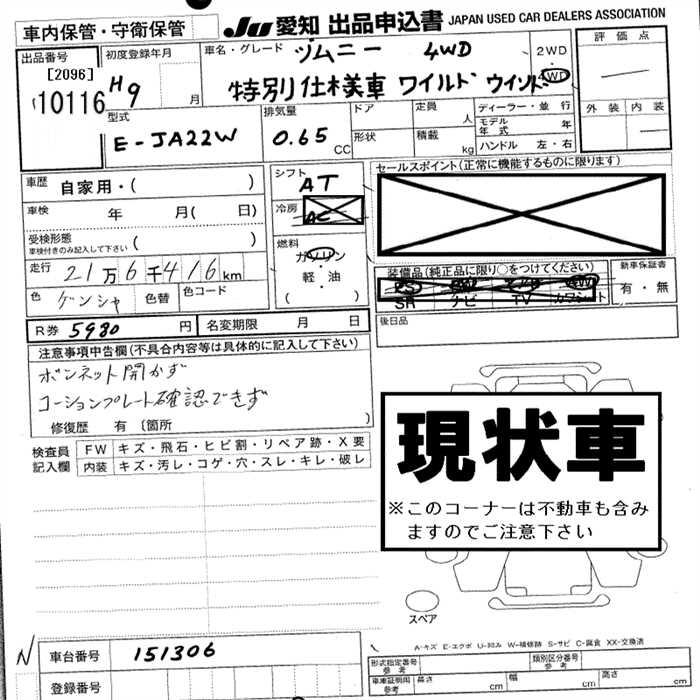 車内保管・守衛保管
JU 愛知 出品申込書 JAPAN USED CAR DEALERS ASSOCIATION
出品番号
[2096]
10116
初度登録年月
H9 月
車名・グレード ジムニー 4WD
特別仕様車 ワイルドウインド
2WD
4WD
評価点
外装 内装
型式
E-JA22W
排気量
0.65 CC
ドア
形状
定員 人
積載 kg
ディーラー・並行
モデル年式 年
ハンドル 左・右
車歴 自家用・( )
車検 年 月( 日)
受検形態
車検付きのみ記入して下さい ( )
走行 21万6千416km
色 ゲンシャ 色替 色コード
シフト AT
冷房 AC
燃料
ガソリン
・
軽・油
( )
セールスポイント(正常に機能するものに限ります)
装備品(純正品に限り○をつけてください)
PS PW
SR ナビ TV カワシート
新車保証書
有・無
後日品
R券 5980 円 名変期限 月 日
注意事項申告欄(不具合内容等は具体的に記入して下さい)
ボンネット開かず
コーションプレート確認できず
修復歴 有 〔箇所 〕
検査員
記入欄
FW キズ・飛石・ヒビ割・リペア跡・X要
内装 キズ・汚レ・コゲ・穴・スレ・キレ・破レ
現状車
※このコーナーは不動車も含み
ますのでご注意下さい
スペア
A-キズ E-エクボ U-凹み W-補修跡 S-サビ C-腐食 XX-交換済
N 車台番号 151306
登録番号
形式指定番号
参考
類別区分番号
参考
車庫証明用
参考
長さ cm 幅 cm 高さ cm